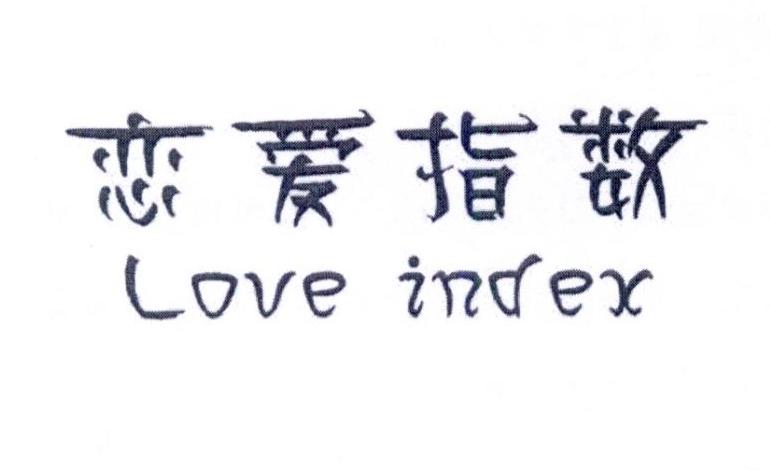 恋爱指数
Love index